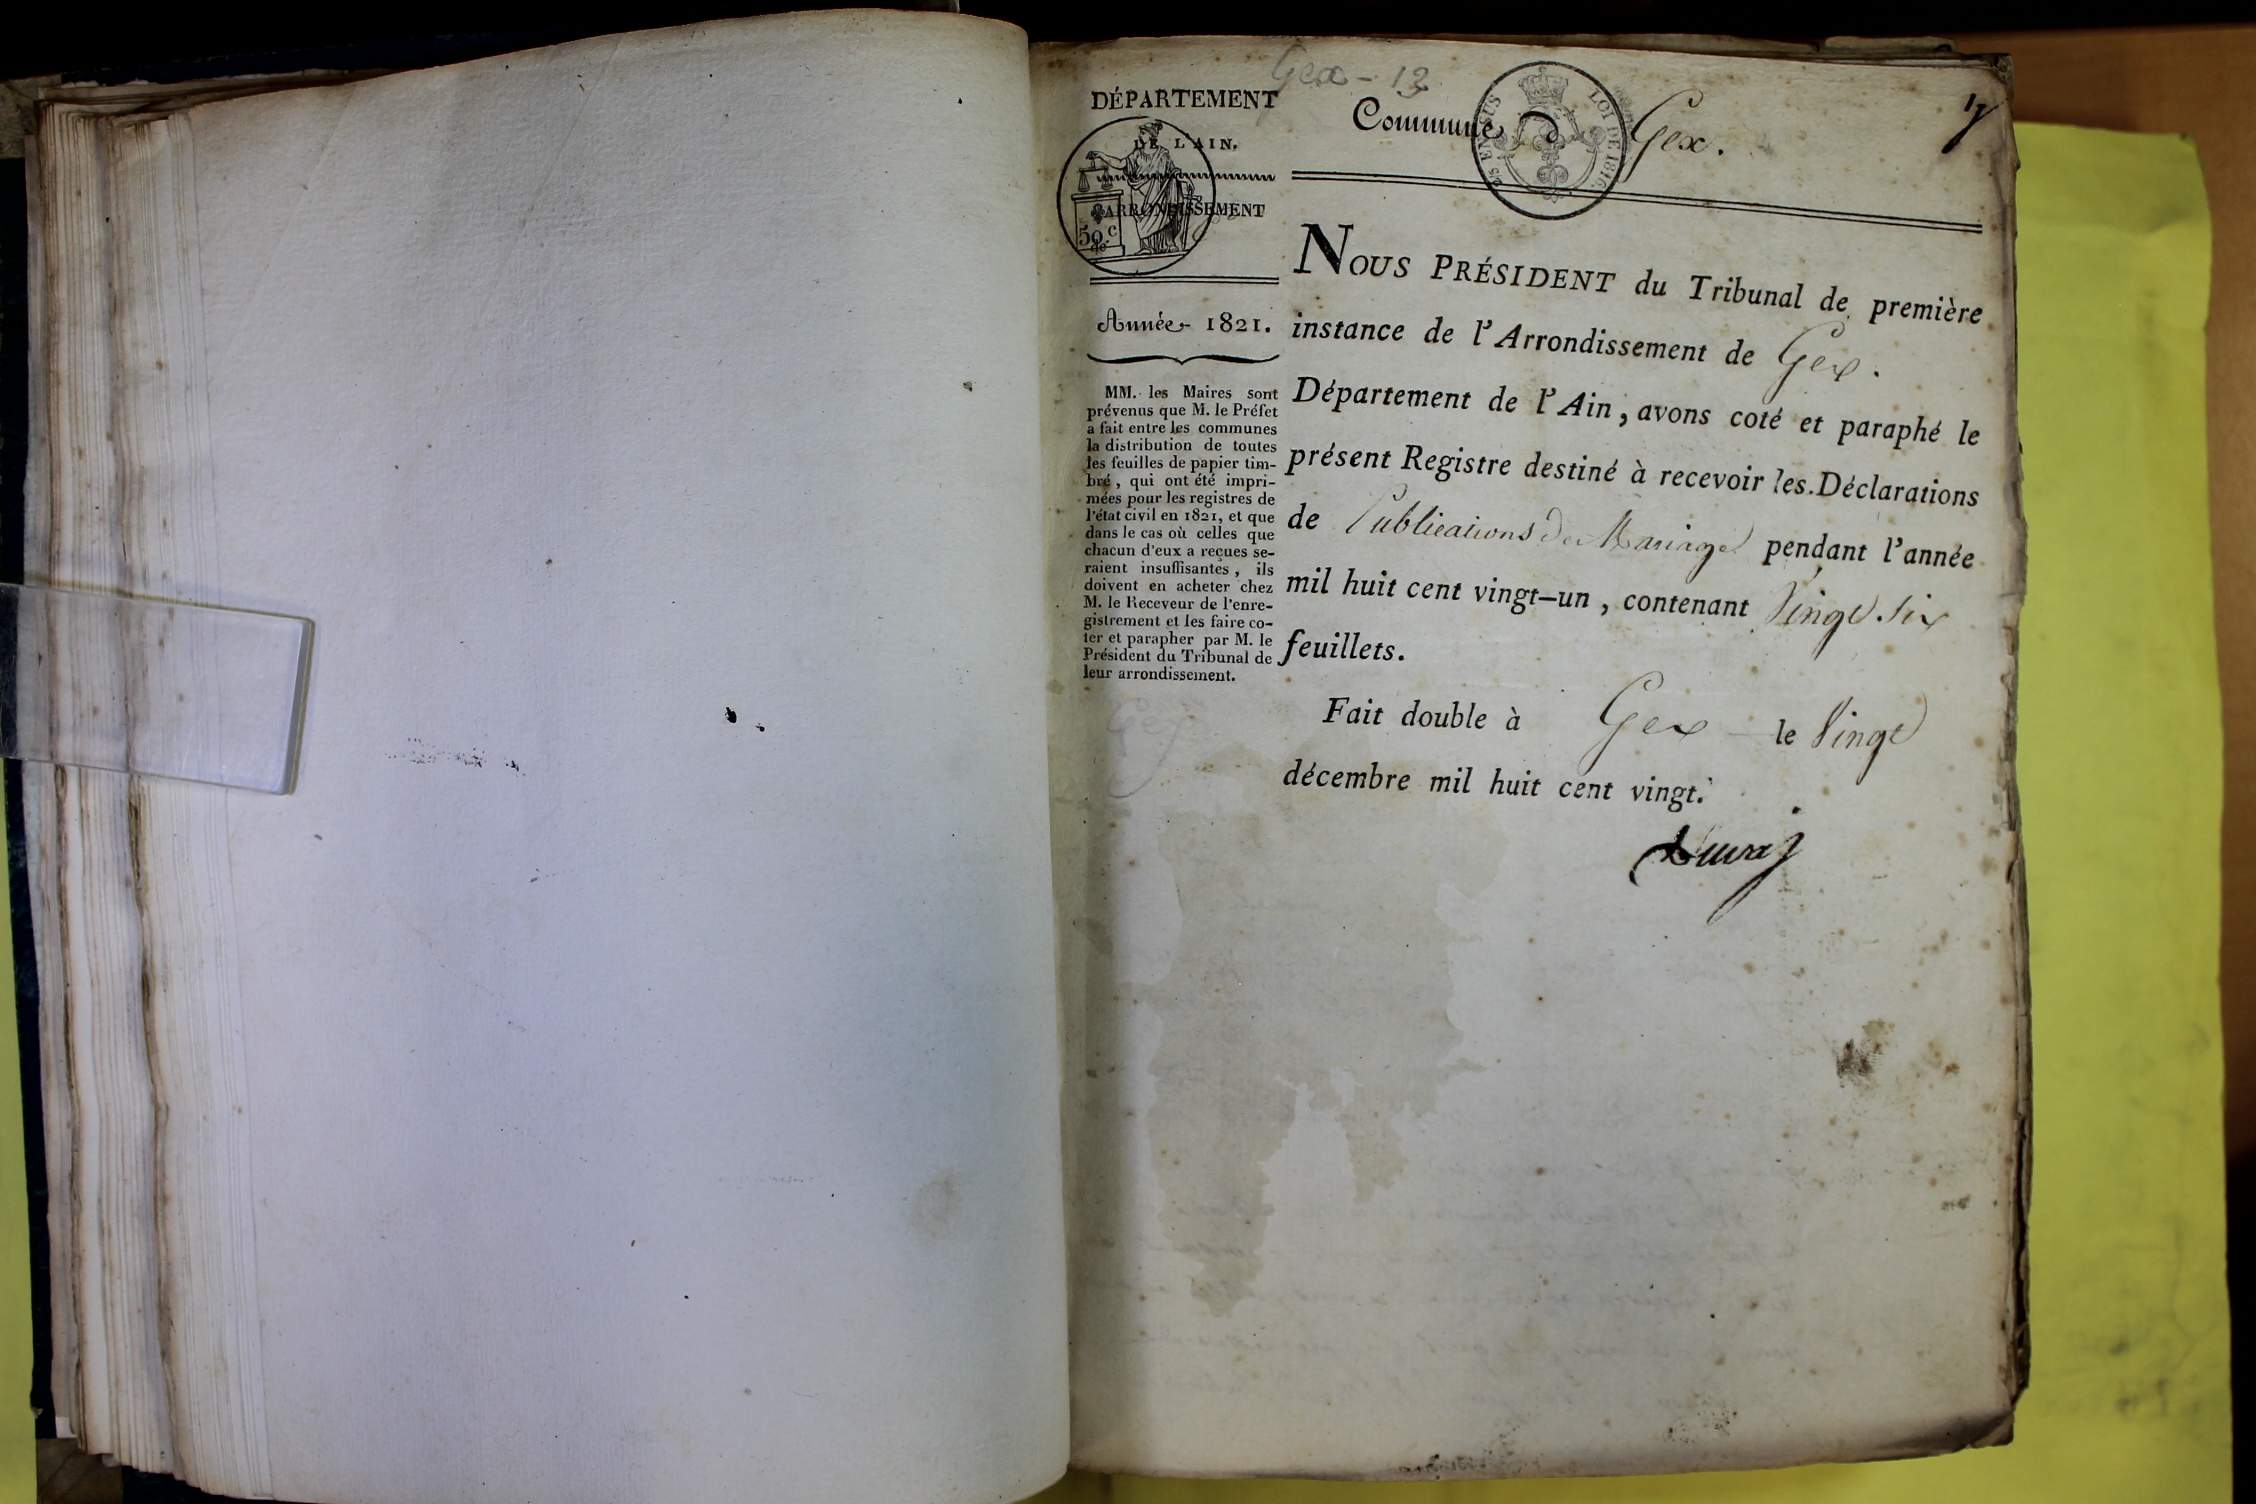 Gex - 13
DÉPARTEMENT
DE L'AIN.
ARRONDISSEMENT
de
50 c
Année 1821.
MM. les Maires sont
prévenus que M. le Préfet
a fait entre les communes
la distribution de toutes
les feuilles de papier tim-
bré, qui ont été impri-
mées pour les registres de
l'état civil en 1821, et que
dans le cas où celles que
chacun d'eux a reçues se-
raient insuffisantes, ils
doivent en acheter chez
M. le Receveur de l'enre-
gistrement et les faire co-
ter et parapher par M. le
Président du Tribunal de
leur arrondissement.
Gex
Commune de Gex.
EN SUS LOI DE 1816.
NOUS PRÉSIDENT du Tribunal de première
instance de l'Arrondissement de Gex.
Département de l'Ain, avons coté et paraphé le
présent Registre destiné à recevoir les Déclarations
de Publications de Mariages pendant l'année
mil huit cent vingt-un, contenant Vingt six
feuillets.
Fait double à Gex le Vingt
décembre mil huit cent vingt.